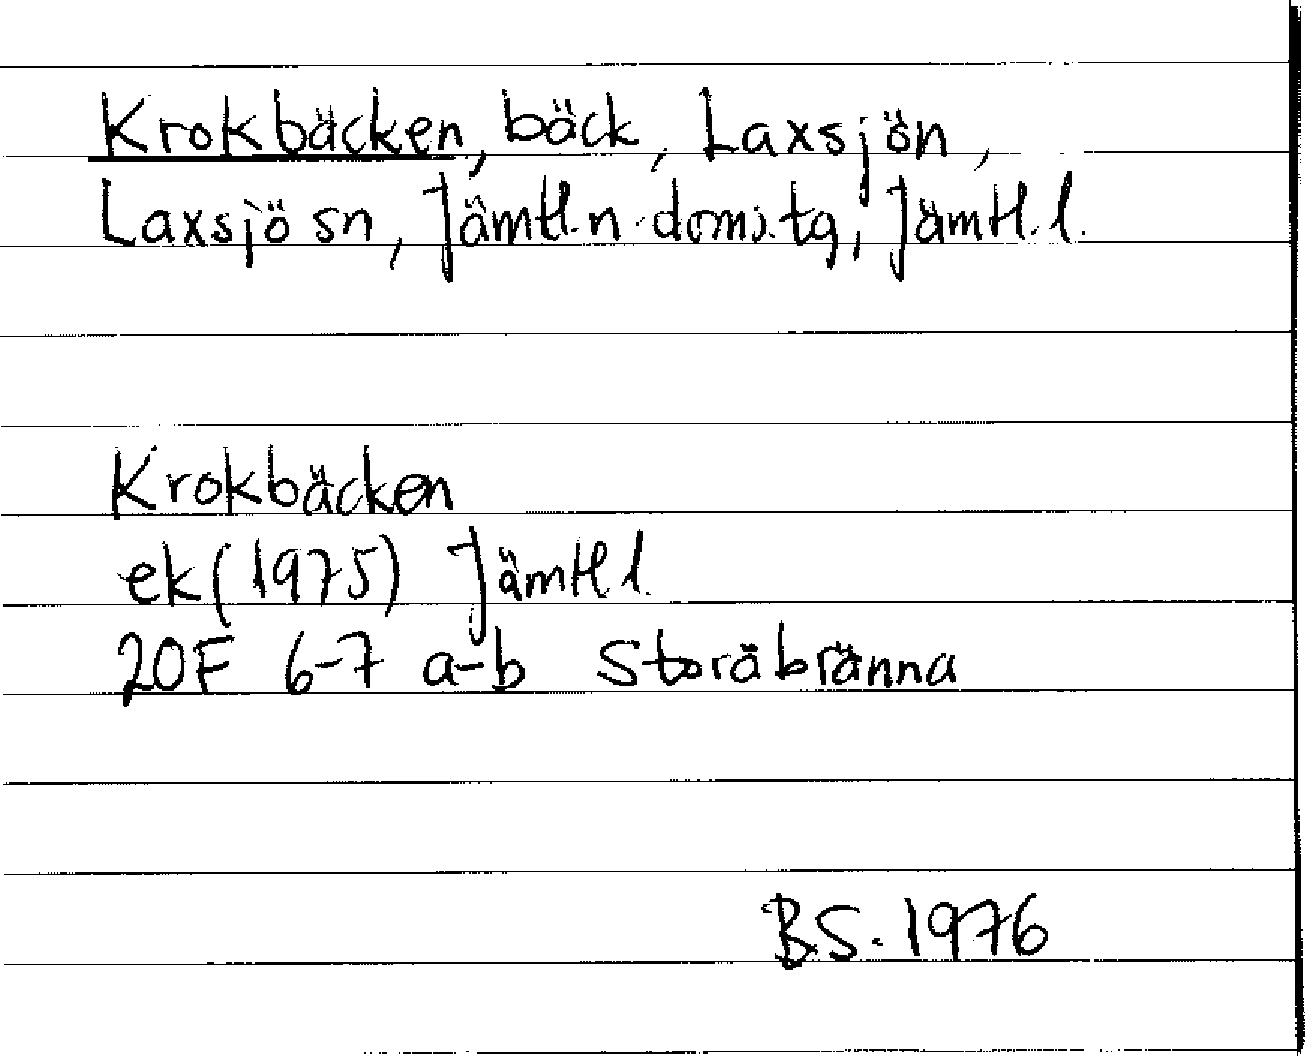 Krokbäcken, bäck, Laxsjön,
Laxsjö sn, Jämtl. n. doms. tg, Jämtl. l.
Krokbäcken
ek (1975) Jämtl l.
20F 6-7 a-b Storåbränna
BS. 1976